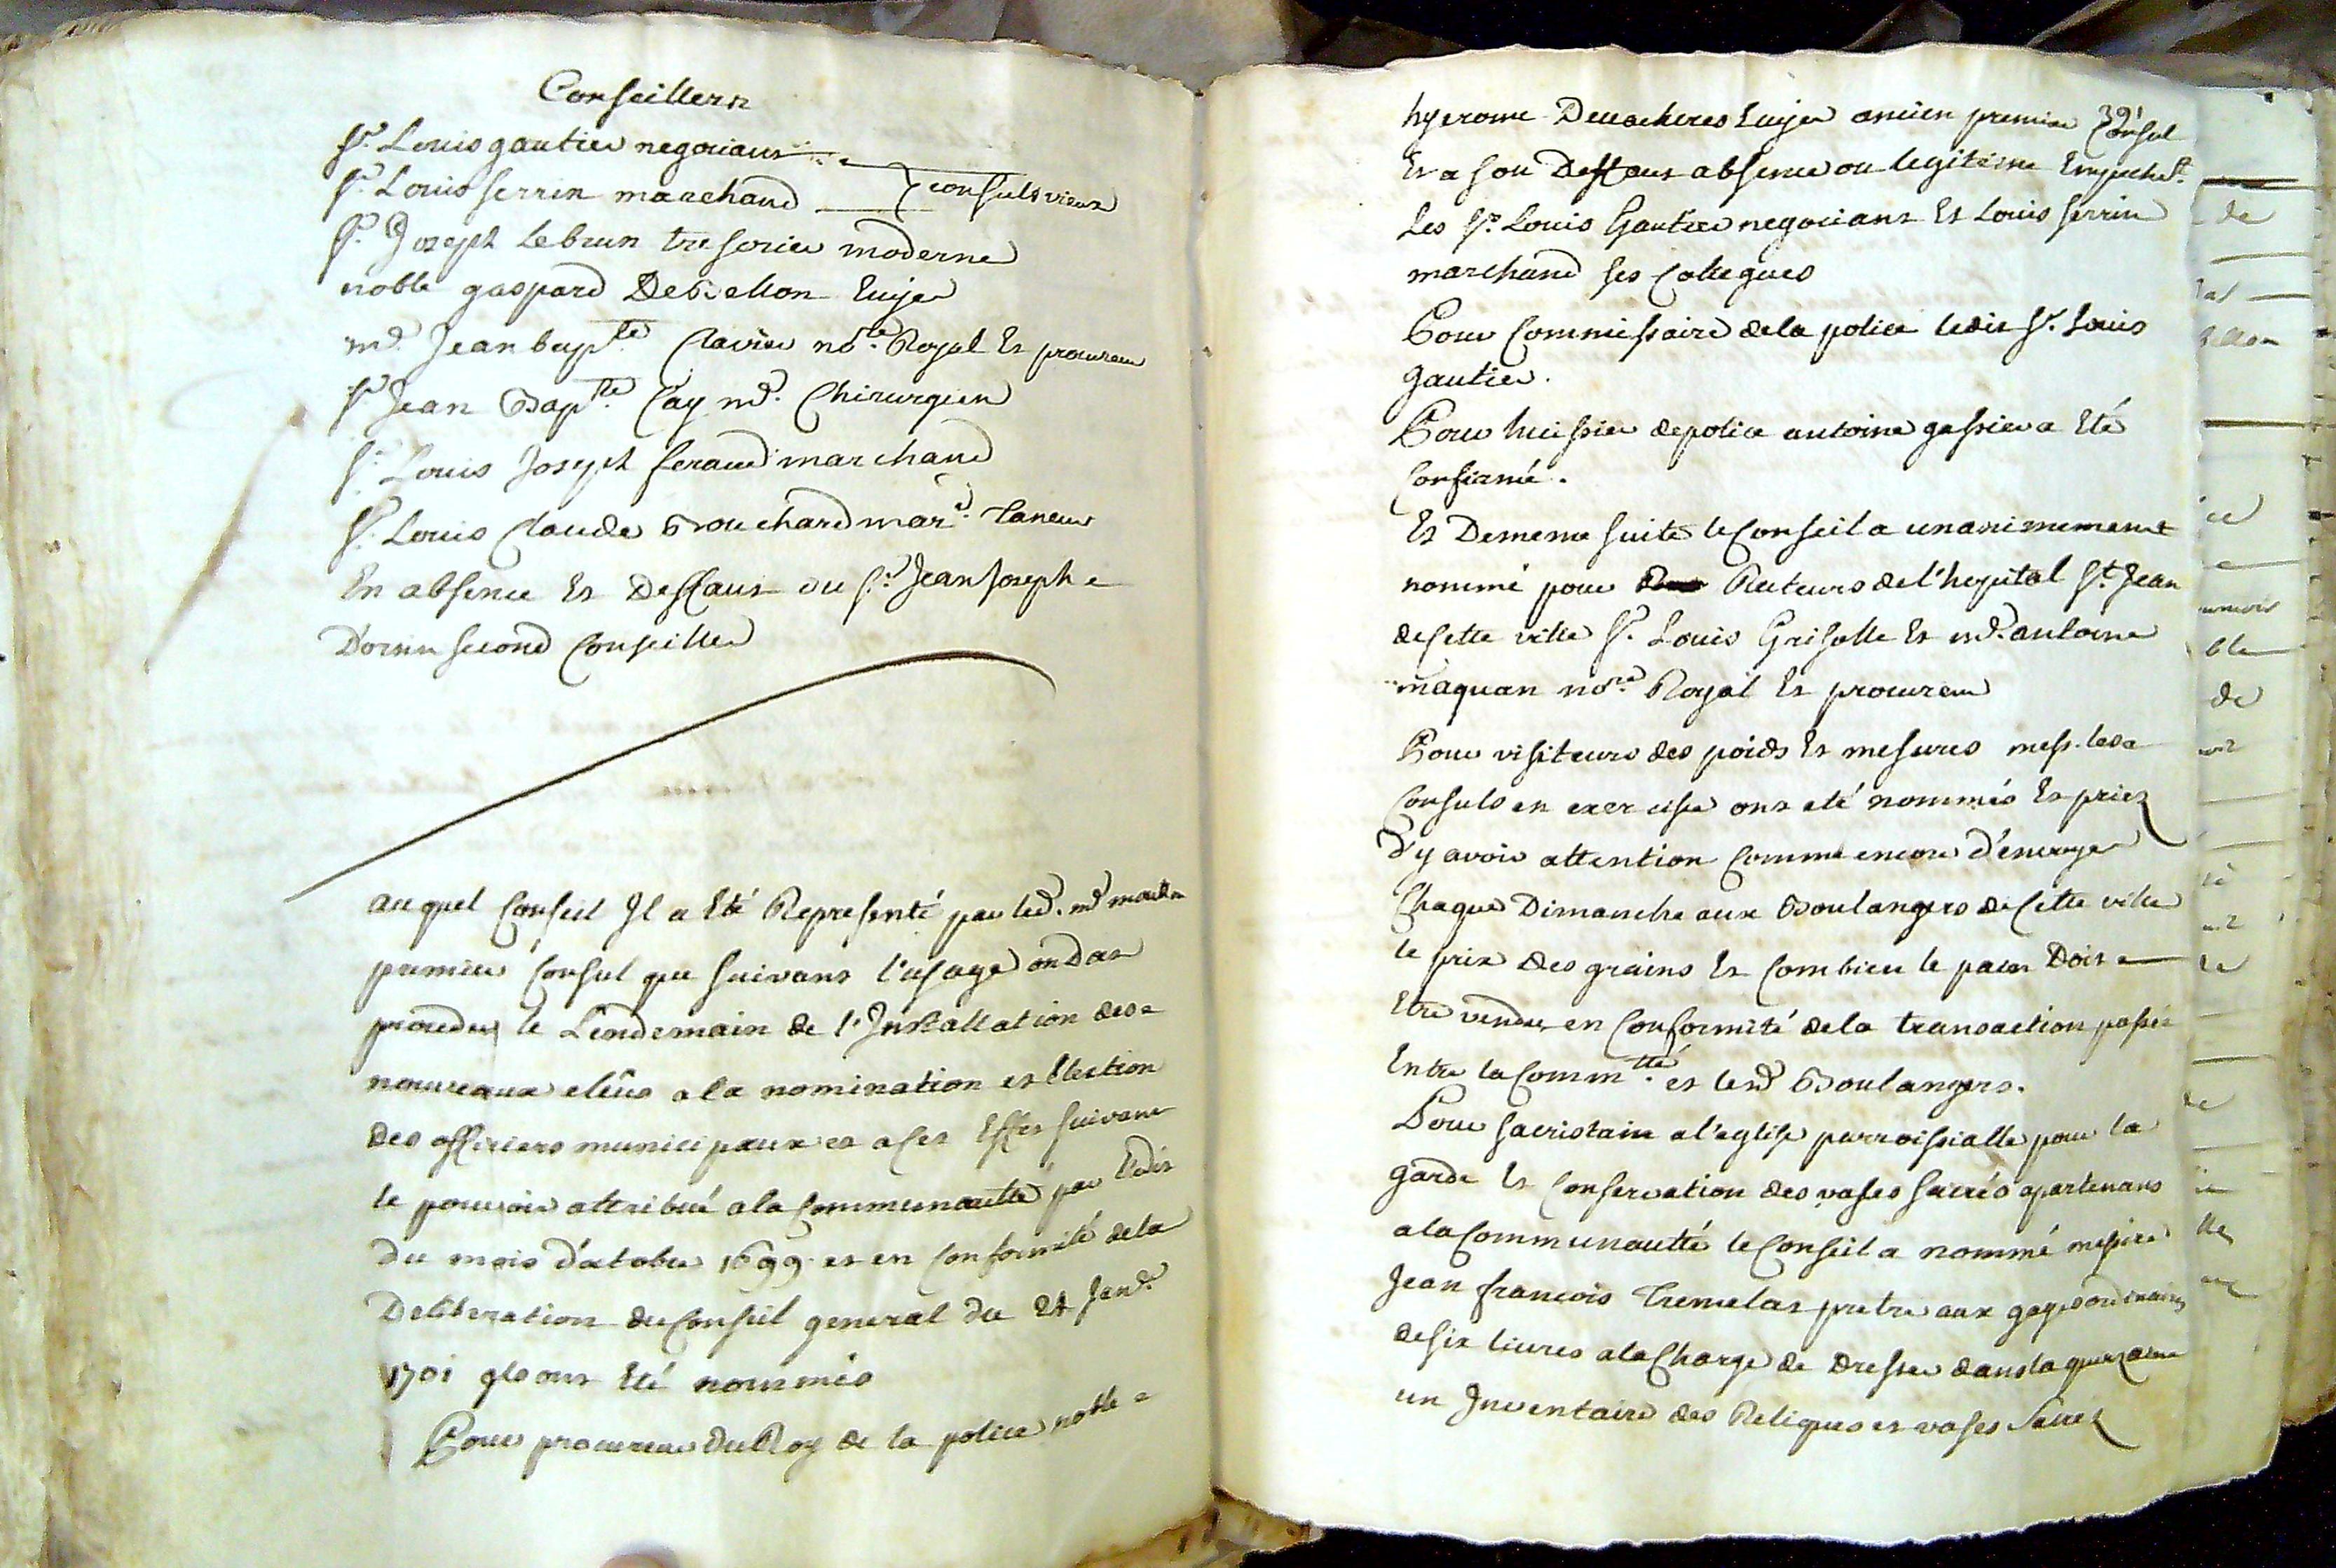 Conseillers
Sr. Louis gautier negociant
Sr. Louis serrin marchand consuls vieux
Sr. Joseph Lebrun tresorier moderne
noble gaspard Debellon Ecuyer
me. Jean bapte. Clavier nore. Royal Et procureur
Sr. Jean Bapte. Cay me. Chirurgien
Sr. Louis Joseph feraud marchand
Sr. Louis Claude Brouchard mard. Taneur
En absence Et Deffaut du Sr. Jean Joseph
D'orsin second Conseiller
au quel Conseil Il a Eté Representé par led. me
premier Consul que suivant l'usage on Doit
proceder le Lendemain de l'Installation des
nouveaux elûs a la nomination et Election
des officiers municipaux et a cet Effet suivant
le pouvoir attribué a la Communautté par Edit
du mois d'octobre 1699. et en Conformité de la
Deliberation du Conseil general du 24 Janr.
1701 Ils ont Eté nommés
Pour procureur du Roy de la police noble
391
hyerome Deuacheres Ecuyer ancien premier Consul
Et a son Deffaut absence ou legitime Empechet.
Les Srs. Louis Gautier negociant Et Louis serrin
marchand ses Collegues
Pour Commissaire de la police ledit Sr. Louis
Gautier.
Pour huissier de police antoine gassier a Eté
Confirmé.
Et De meme suite le Conseil a unanimement
nommé pour Recteurs de l'hopital St. Jean
de Cette ville Sr. Louis Grisolle Et me. antoine
maquan nore. Royal Et procureur
Pour visiteurs des poids Et mesures mess. les
Consuls en exercise ont eté nommés Et priez
D'y avoir attention Comme encore d'envoyer
Chaque Dimanche aux Boulangers de Cette ville
le prix des grains Et Combien le pain Doit
Etre vendu, en Conformité de la transaction passée
Entre la Commtté. et lesd Boulangers.
Pour sacristain a l'eglise parroissialle pour la
garde Et Conservation des vases sacrés apartenans
a la Communautté le Conseil a nommé messire
Jean francois Tremelat pretre aux gages ordinaires
de six livres a la Charge de Dresser dans la quinzaine
un Inventaire des Reliques et vases Sacrez